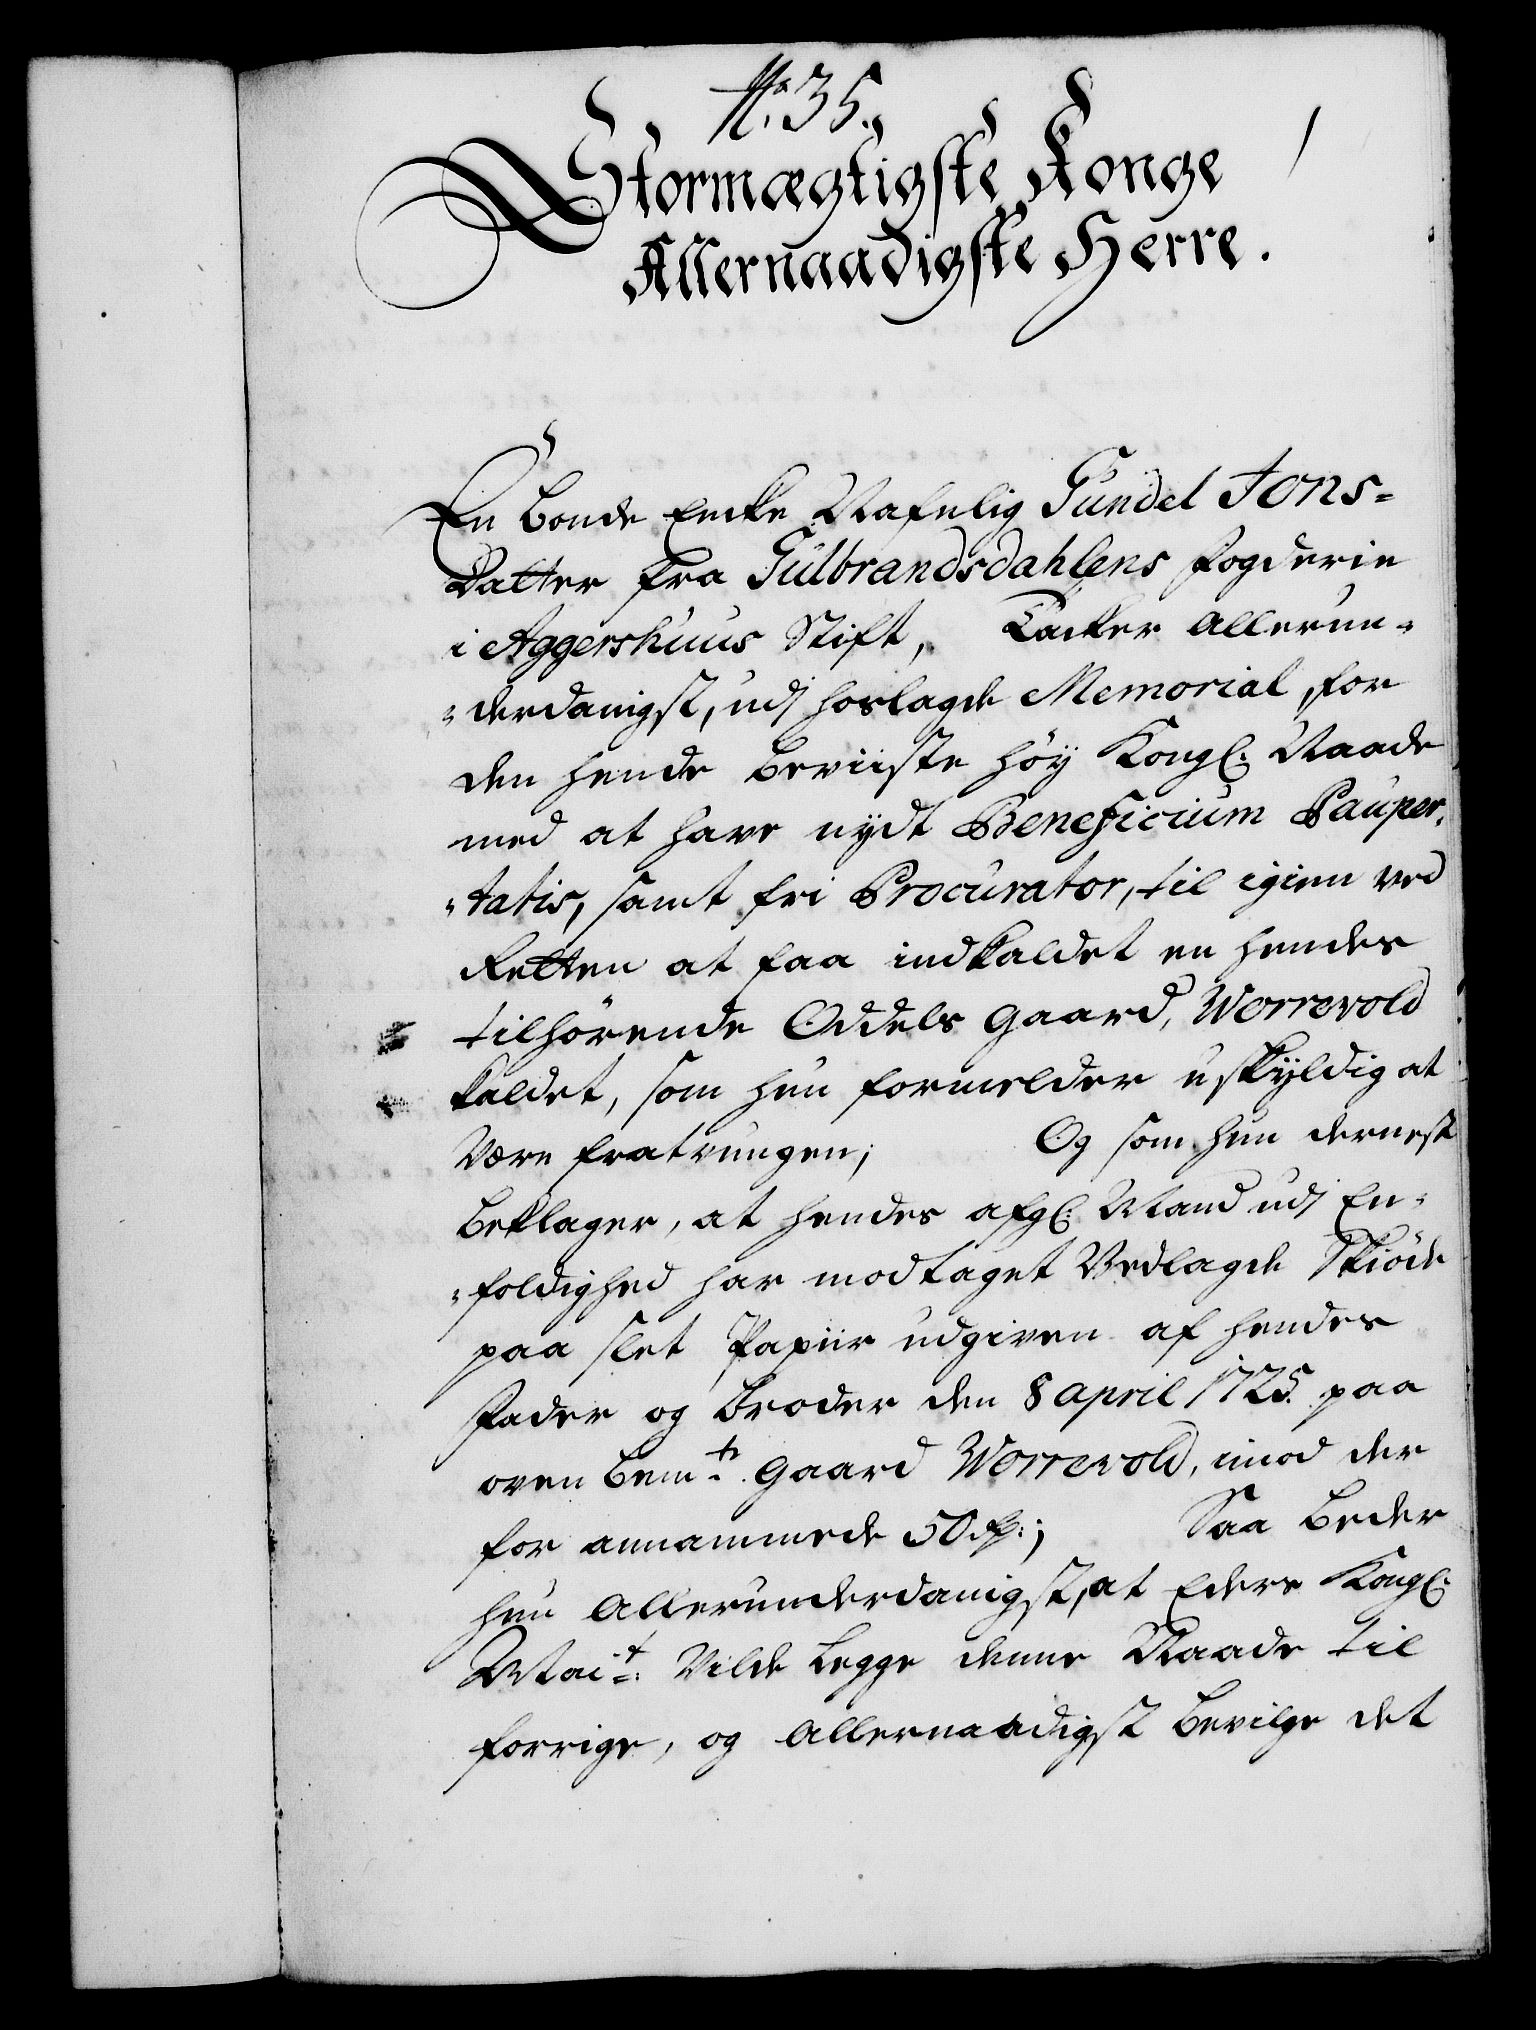 No. 35.
Stormægtigste Konge
Allernaadigste Herre.
En Bonde Encke Nafnlig Gundel Jons-
Datter fra Gulbrandsdahlens fogderie
i Aggershuus Stift, Tacker Allerun-
-derdanigst, udj hoslagde Memorial, for
den hende beviiste höy Kongl: Naade
med at have nydt Beneficium Pauper-
-tatis, samt fri Procurator, til igien ved
Retten at faa indkaldet en hendes
tilhörende Oddels Gaard, Worrevold
kaldet, som hun formelder uskyldig at
være fratvungen; Og som hun dernest
beklager, at hendes afgl: Mand udj En-
-foldighed har modtaget Vedlagde Skiöde
paa slet Papiir udgiven af hendes
Fader og Broder den 8 april 1725. paa
oven bemte. Gaard Worrevold, imod der
for annammede 50 rdr:; Saa beder
hun Allerunderdanigst, at Eders Kongl:
Mait: Vilde legge denne Naade til
forrige, og Allernaadigst bevilge det